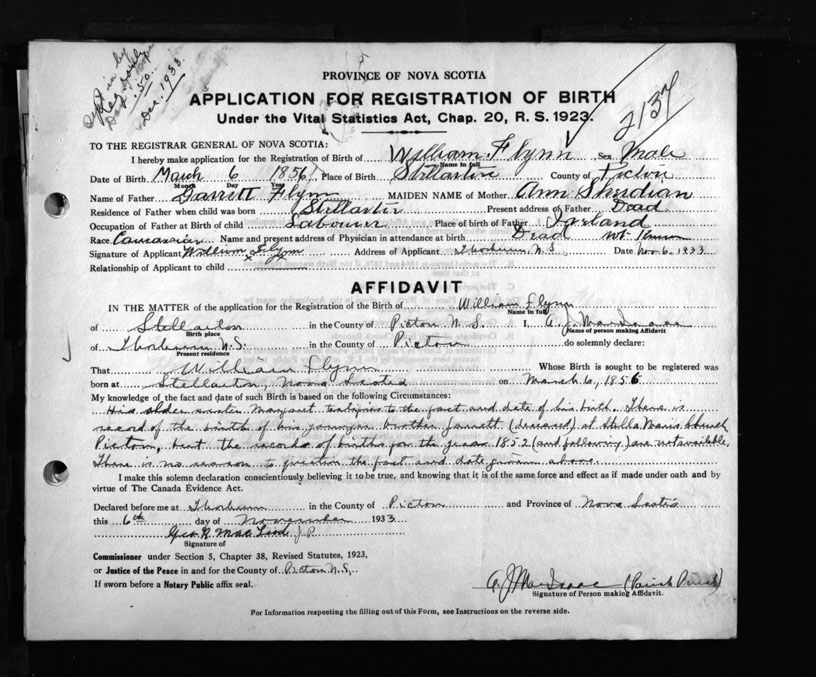 Dec. 1933.
2137
PROVINCE OF NOVA SCOTIA
APPLICATION FOR REGISTRATION OF BIRTH
Under the Vital Statistics Act, Chap. 20, R. S. 1923.
TO THE REGISTRAR GENERAL OF NOVA SCOTIA:
I hereby make application for the Registration of Birth of William Flynn Sex Male
Name in full
Date of Birth March 6 1856 Place of Birth Stellarton County of Pictou
Month Day Year
Name of Father Garrett Flynn MAIDEN NAME of Mother Ann Sheridian
Residence of Father when child was born Stellarton Present address of Father Dead
Occupation of Father at Birth of child Labourer Place of birth of Father Ireland
Race Caucassian Name and present address of Physician in attendance at birth Dead not known
Signature of Applicant William Flynn Address of Applicant Thorburn, N.S. Date Nov 6. 1933
Relationship of Applicant to child
AFFIDAVIT
IN THE MATTER of the application for the Registration of the Birth of William Flynn
Name in full
of Stellarton in the County of Pictou N.S. I, A. J. MacIsaac
Birth place (Name of person making Affidavit
of Thorburn N.S. in the County of Pictou do solemnly declare:
Present residence
That William Flynn Whose Birth is sought to be registered was
born at Stellarton, Nova Scotia on March 6, 1856
My knowledge of the fact and date of such Birth is based on the following Circumstances:
His older sister Margaret testifies to the fact and date of his birth. There is
record of the birth of his younger brother Garrett (deceased) at Stella Maris Church
Pictou, but the records of births for the year 1852 (and following) are not available.
There is no reason to question the fact and date given above.
I make this solemn declaration conscientiously believing it to be true, and knowing that it is of the same force and effect as if made under oath and by
virtue of The Canada Evidence Act.
Declared before me at Thorburn in the County of Pictou and Province of Nova Scotia
this 6th day of November 1933
Geo. R. MacLeod J.P.
Signature of
Commissioner under Section 5, Chapter 38, Revised Statutes, 1923,
or Justice of the Peace in and for the County of Pictou N.S.
If sworn before a Notary Public affix seal.
A. J. MacIsaac (Parish Priest)
Signature of Person making Affidavit.
For Information respecting the filling out of this Form, see Instructions on the reverse side.